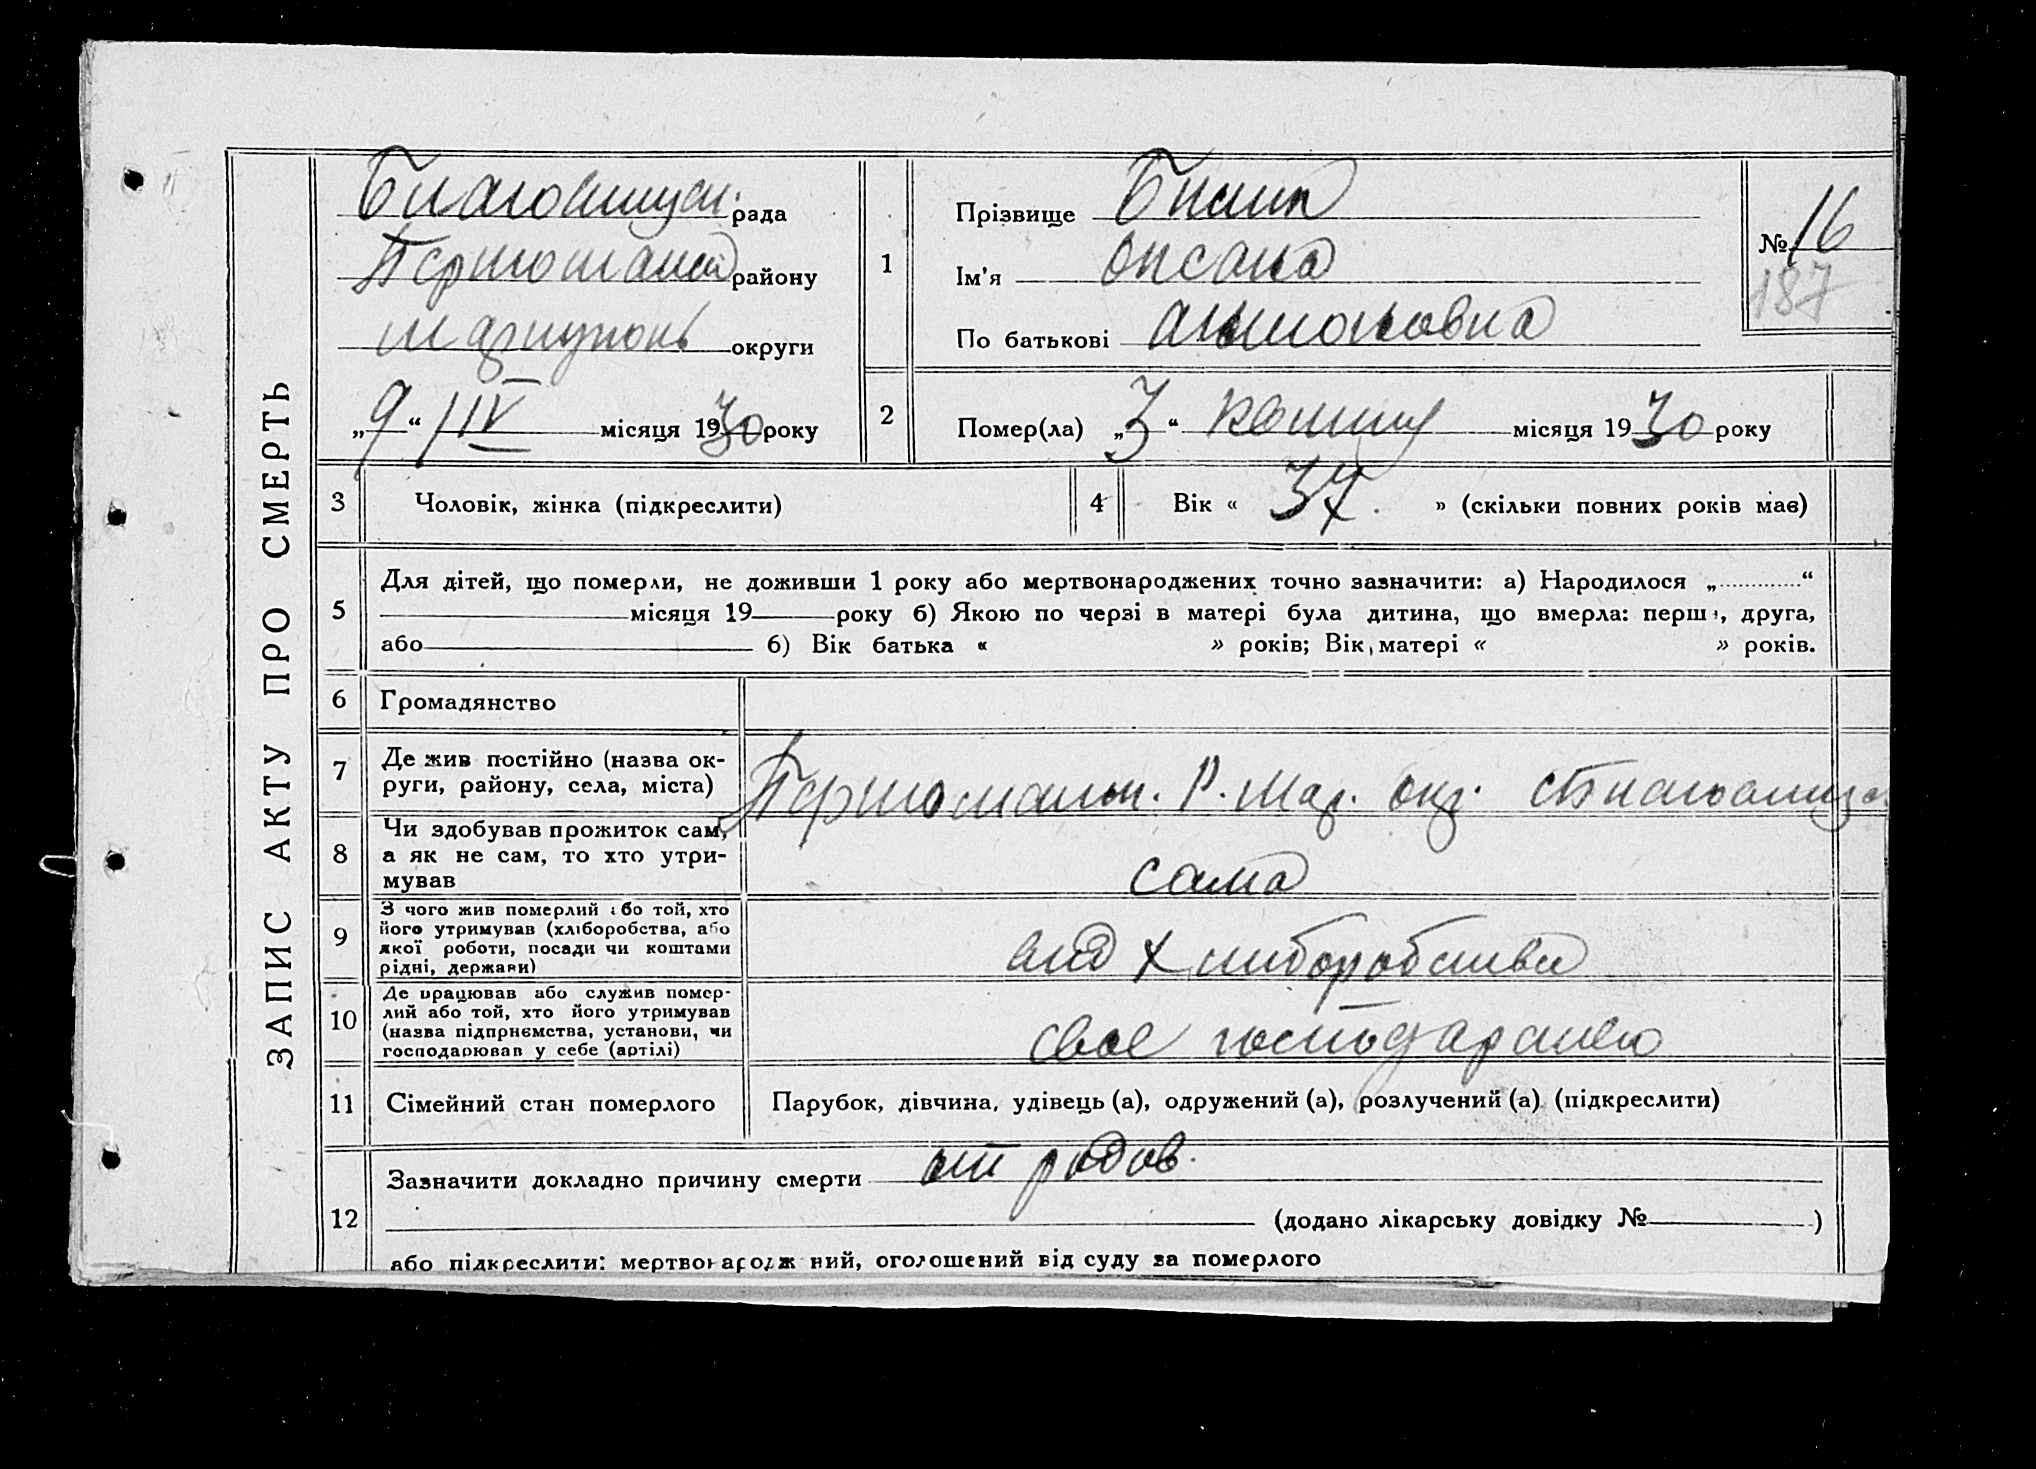 ЗАПИС АКТУ ПРО СМЕРТЬ
рада
району
округи
„9“ IV місяця 1930 року
1
Прізвище
Ім'я Оксана
По батькові Антоновна
№ 16
187
2
Помер(ла) „3“ місяця 1930 року
3
Чоловік, жінка (підкреслити)
4
Вік « 37. » (скільки повних років має)
5
Для дітей, що померли, не доживши 1 року або мертвонароджених точно зазначити: а) Народилося „ “
місяця 19 року б) Якою по черзі в матері була дитина, що вмерла: перш, друга,
або б) Вік батька « » років; Вік матері « » років.
6
Громадянство
7
Де жив постійно (назва ок-
руги, району, села, міста)
Р. Мар. окр.
8
Чи здобував прожиток сам,
а як не сам, то хто утри-
мував
сама
9
З чого жив померлий або той, хто
його утримував (хліборобства, або
якої роботи, посади чи коштами
рідні, держави)
від хліборобства
10
Де працював або служив помер-
лий або той, хто його утримував
(назва підприємства, установи, чи
господарював у себе (артілі)
своє господарство
11
Сімейний стан померлого
Парубок, дівчина, удівець (а), одружений (а), розлучений (а) (підкреслити)
12
Зазначити докладно причину смерти от родов.
(додано лікарську довідку № )
або підкреслити: мертвонароджений, оголошений від суду за померлого